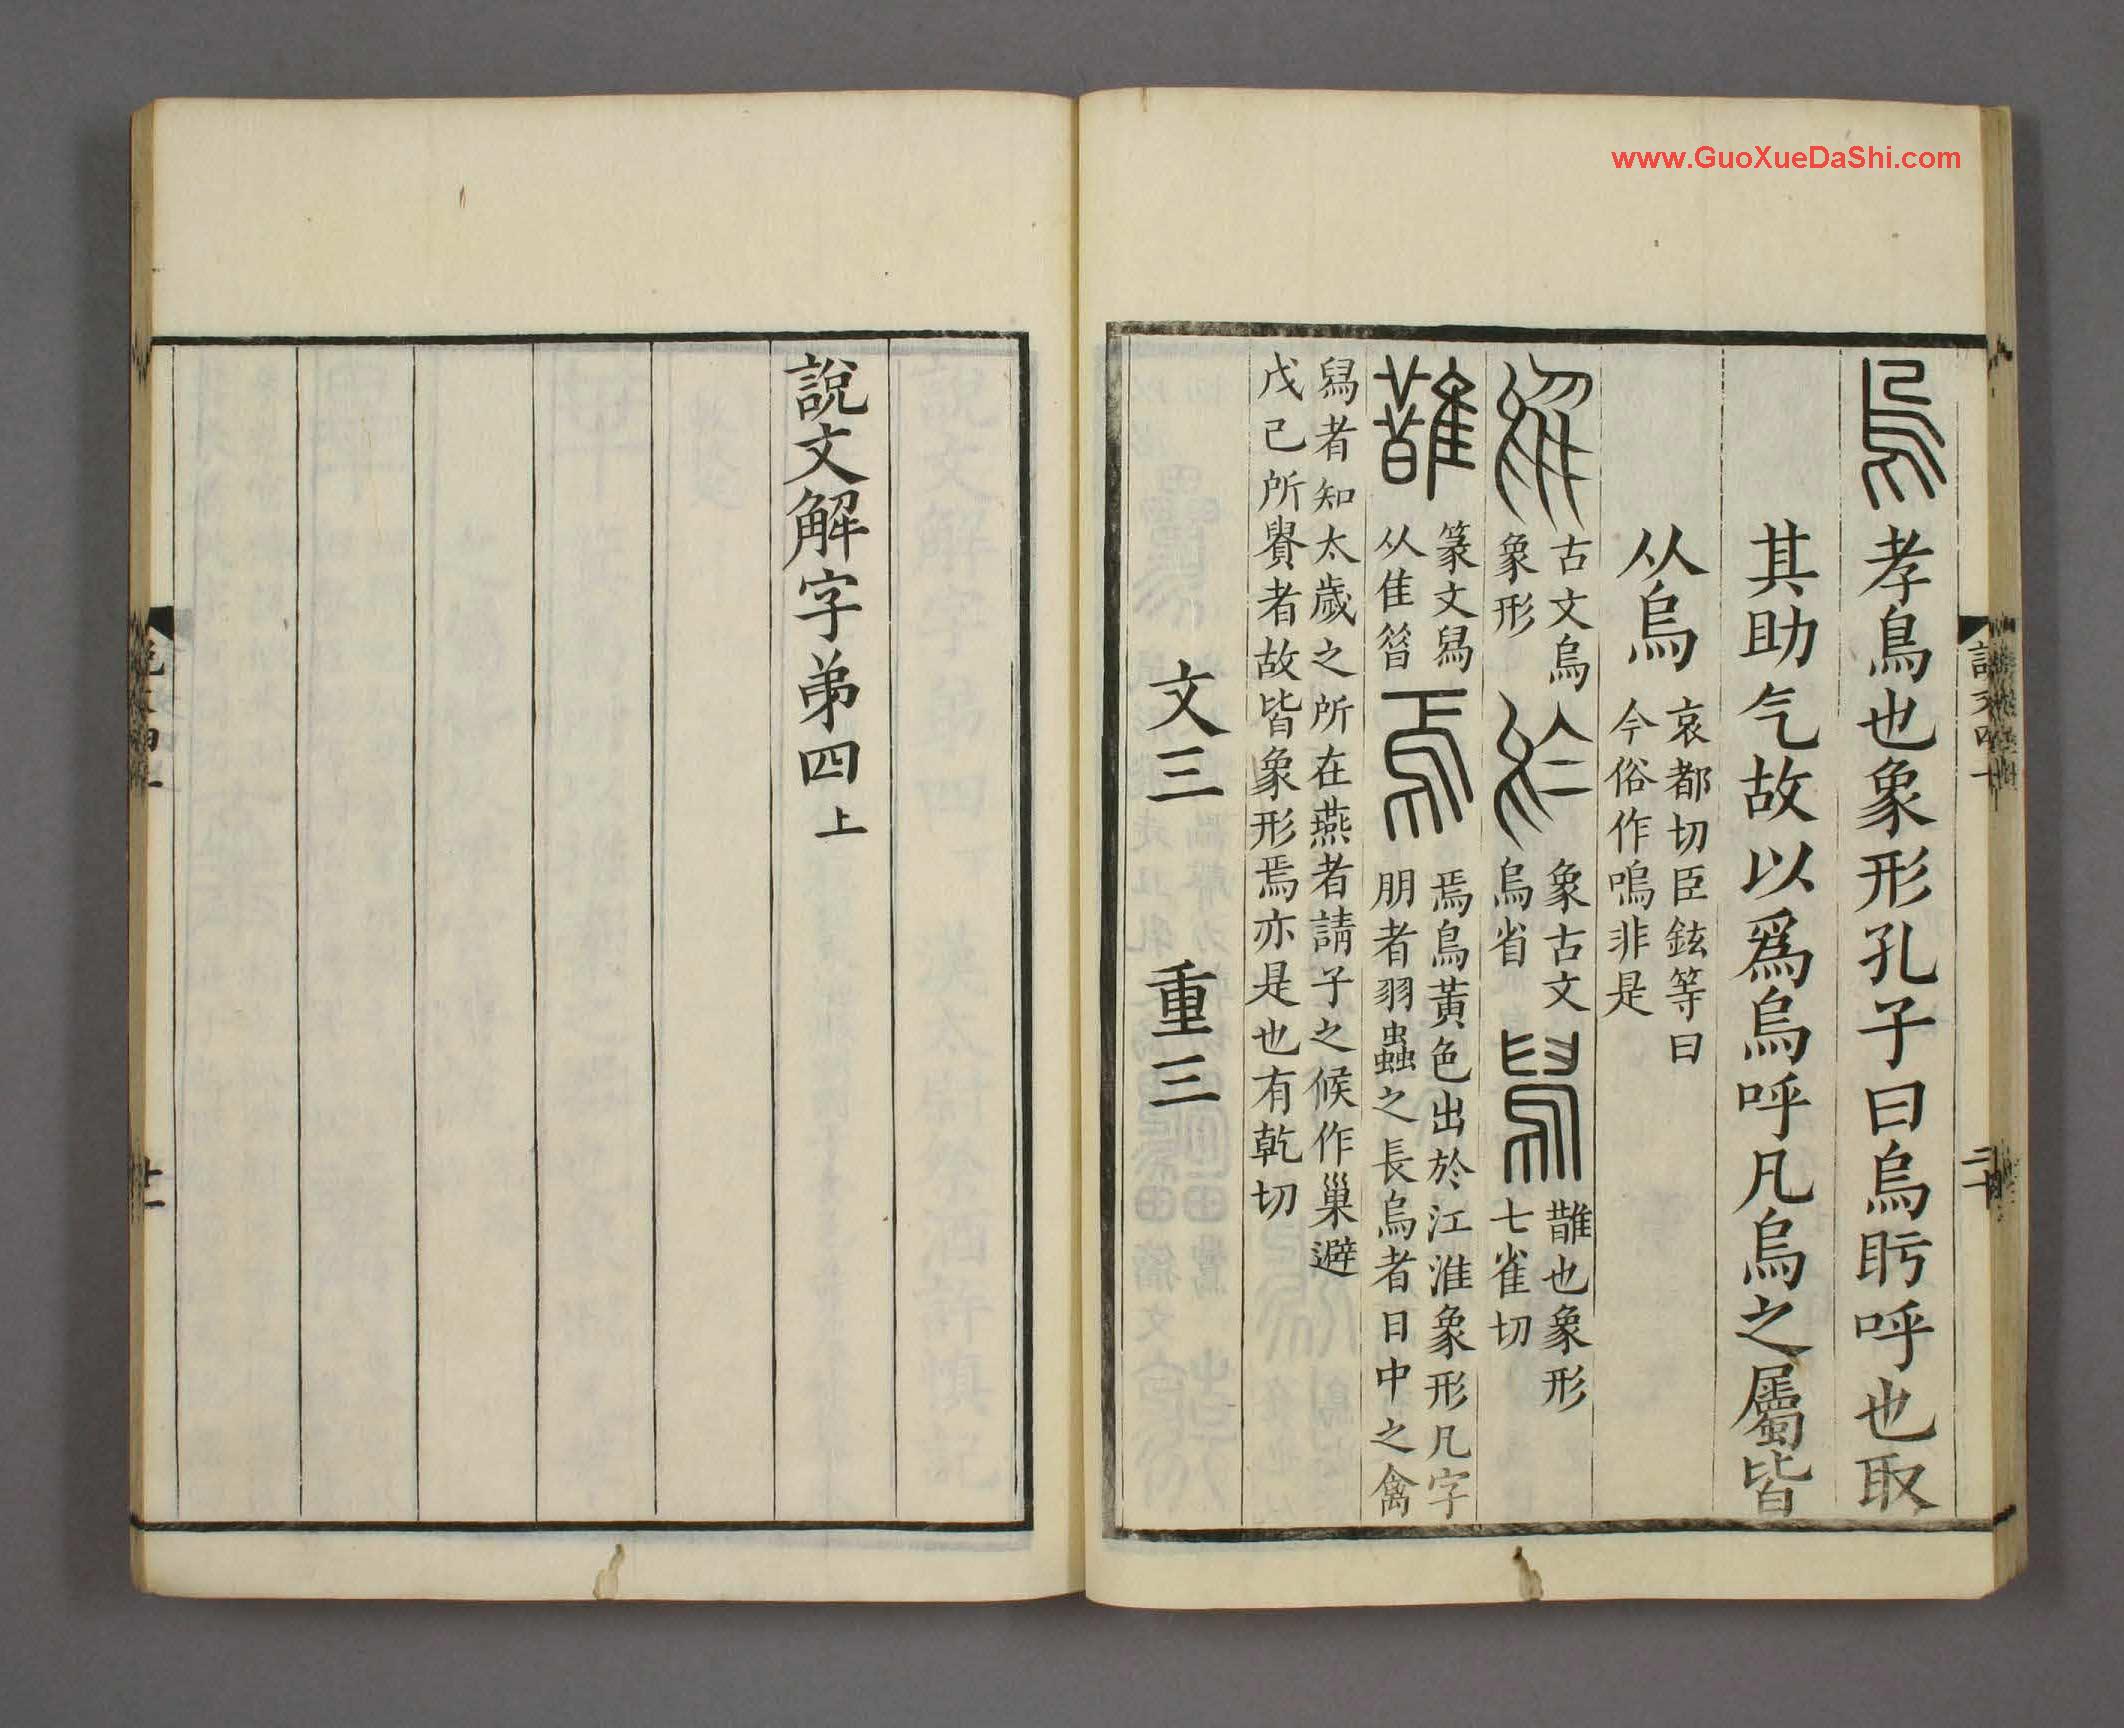 www.GuoXueDaShi.com
烏 孝鳥也象形孔子曰烏盱呼也取
其助气故以爲烏呼凡烏之屬皆
从烏 哀都切臣鉉等曰
今俗作嗚非是
古文烏
象形
於 象古文
烏省
舄 䧿也象形
七雀切
䧿 篆文舄
从隹㫺
焉 焉鳥黃色出於江淮象形凡字
朋者羽蟲之長烏者日中之禽
舄者知太歲之所在燕者請子之候作巢避
戊己所貴者故皆象形焉亦是也有乾切
文三 重三
說文四上
二十
說文解字弟四上
說文四上
廿一